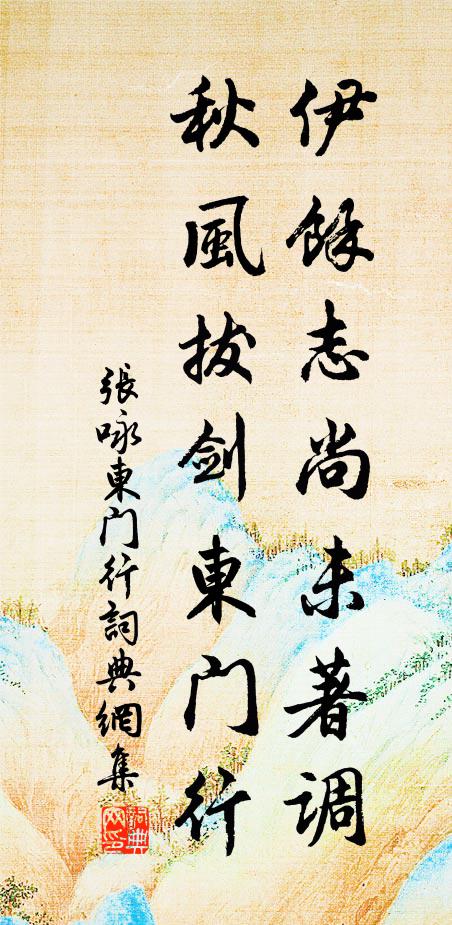 伊餘志尚未著调
秋風拔劍東門行
張咏東門行詞典網集
詞典网印